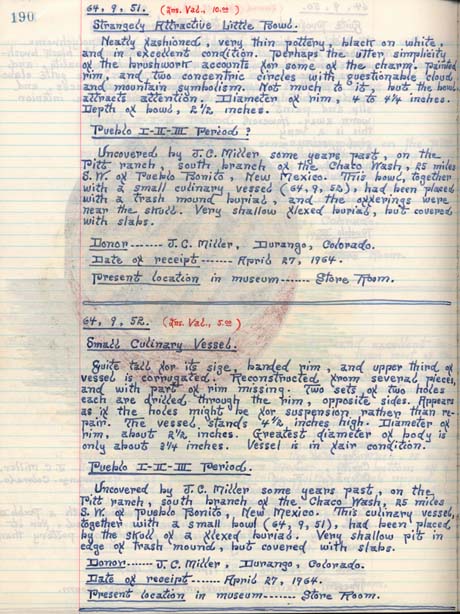 190
64, 9, 51. (Ins. Val., 10.00)
Strangely Attractive Little Bowl.
Neatly fashioned, very thin pottery, black on white,
and in excellent condition. Perhaps the utter simplicity
of the brushwork accounts for some of the charm. Painted
rim, and two concentric circles with questionable cloud
and mountain symbolism. Not much to it, but the bowl
attracts attention. Diameter of rim, 4 to 4¼ inches.
Depth of bowl, 2½ inches.
Pueblo I-II-III Period?
Uncovered by J.C. Miller some years past, on the
Pitt ranch, south branch of the Chaco Wash, 25 miles
S.W. of Pueblo Bonito, New Mexico. This bowl, together
with a small culinary vessel (64, 9, 52), had been placed
with a trash mound burial, and the offerings were
near the skull. Very shallow flexed burial, but covered
with slabs.
Donor------- J.C. Miller, Durango, Colorado.
Date of receipt------- April 27, 1964.
Present location in museum------ Store Room.
64, 9, 52. (Ins. Val., 5.00)
Small Culinary Vessel.
Quite tall for its size, banded rim, and upper third of
vessel is corrugated. Reconstructed from several pieces,
and with part of rim missing. Two sets of two holes
each are drilled through the rim, opposite sides. Appears
as if the holes might be for suspension rather than re-
pair. The vessel stands 4½ inches high. Diameter of
rim, about 2½ inches. Greatest diameter of body is
only about 3¼ inches. Vessel is in fair condition.
Pueblo I-II-III Period.
Uncovered by J.C. Miller some years past, on the
Pitt ranch, south branch of the Chaco Wash, 25 miles
S.W. of Pueblo Bonito, New Mexico. This culinary vessel,
together with a small bowl (64, 9, 51), had been placed
by the skull of a flexed burial. Very shallow pit in
edge of trash mound, but covered with slabs.
Donor------ J.C. Miller, Durango, Colorado.
Date of receipt------ April 27, 1964.
Present location in museum------ Store Room.